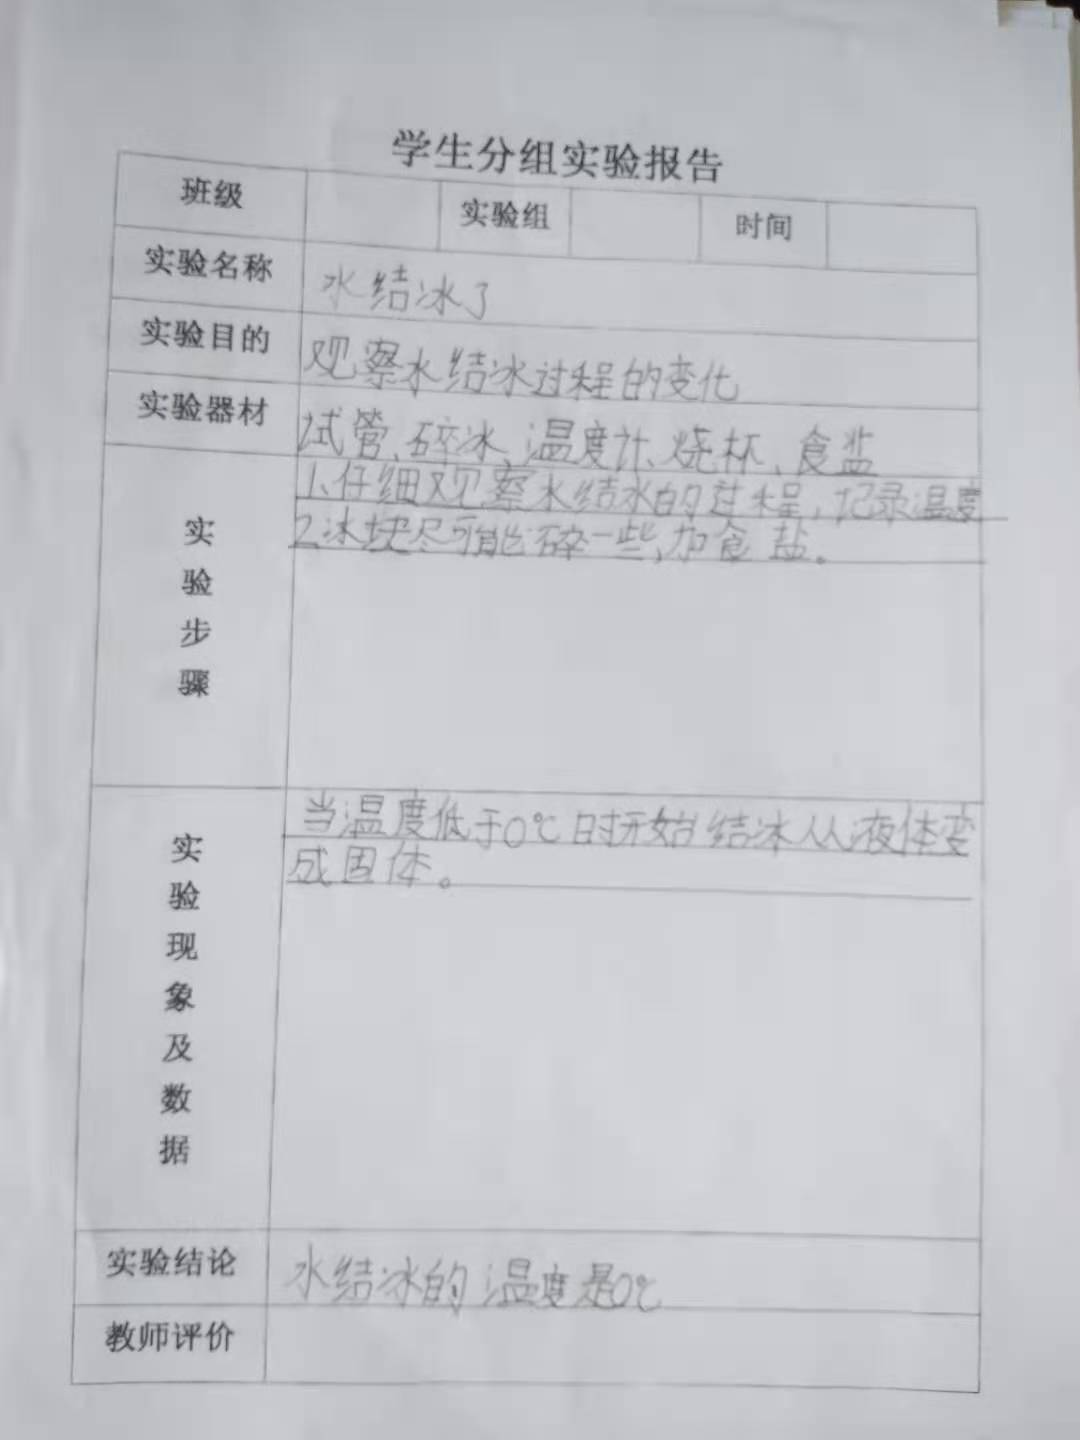 学生分组实验报告
班级 实验组 时间
实验名称 水结冰了
实验目的 观察水结冰过程的变化
实验器材 试管、碎冰、温度计、烧杯、食盐
实验步骤
1、仔细观察水结冰的过程，记录温度
2、冰块尽可能碎一些，加食盐。
实验现象及数据
当温度低于0℃时开始结冰从液体变
成固体。
实验结论 水结冰的温度是0℃
教师评价